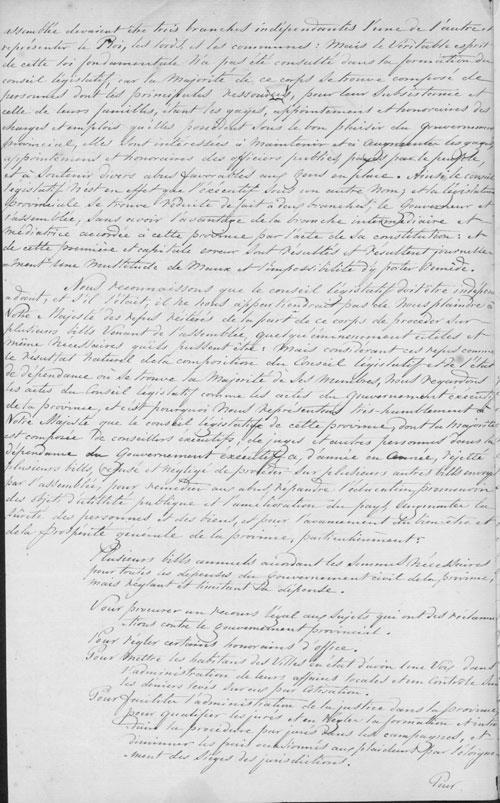 assemblée devaient être trois branches indépendantes l'une de l'autre et
représenter le Roi, les lords et les communes : Mais le Véritable esprit
de cette loi fondamentale n'a pas été consulté dans la formation du
conseil législatif, car la Majorité de ce corps se trouve composé de
personnes dont les principales ressources, pour leur subsistance et
celle de leurs familles, étant les gages, appointement et honoraires des
charges et emplois qu'elles possèdent sous le bon plaisir du Gouvernement
provincial, elles sont intéressées à Maintenir et à augmenter les gages,
appointemens et honoraires des officiers publics payés par le peuple,
et à Soutenir divers abus favorables aux gens en place. Ainsi le conseil
législatif n'est en effet que l'exécutif Sous un autre Nom, et la législature
provinciale se trouve Réduite de fait à deux branches, le Gouverneur et
l'assemblée, Sans avoir l'avantage de la branche intermédiaire et
médiatrice accordée à cette province par l'acte de sa constitution : et
de cette première et capitale erreur sont resultés et resultent journelle
ment une Multitude de Maux et l'impossibilité d'y porter remède.
Nous reconnaissons que le conseil législatif doit être indépen
dant, et s'il l'était, il ne nous appartiendrait pas de Nous plaindre à
Votre Majesté des refus réitérés de la part de ce corps de procéder sur
plusieurs bills Venant de l'assemblée, quelqu'éminemment utiles et
même nécessaires qu'ils pussent être : Mais considérant ces refus comme
le résultat Naturel de la composition du Conseil législatif et de l'état
de dépendance où se trouve la Majorité de Ses Membres, Nous regardons
les actes du Conseil législatif comme les actes du Gouvernement exécutif
de la province, et c'est pourquoi Nous représentons très-humblement à
Votre Majesté que le conseil législatif de cette province, dont la majorité
est composée de conseillers exécutifs, de juges et autres personnes dans la
dépendance du Gouvernement exécutif a, d'année en année, rejetté
plusieurs bills, refusé et négligé de procéder sur plusieurs autres bills envoyés
par l'assemblée, pour remédier aux abus, répandre l'éducation, promouvoir
des objets d'utilité publique et l'amélioration du pays, augmenter la
sûreté des personnes et des biens, et pour l'avancement du bien-être et
de la prospérité générale de la province, particulièrement :
Plusieurs bills annuels accordant les Sommes Nécessaires
pour toutes les dépenses du Gouvernement civil de la province,
mais réglant et limitant la dépense.
Pour procurer un recours légal aux Sujets qui ont des réclama
tions contre le Gouvernement provincial.
Pour régler certains honoraires d'office.
Pour mettre les habitans des Villes en état d'avoir une Voix dans
l'administration de leurs affaires locales et un contrôle sur
les deniers levés sur eux par cotisation.
Pour faciliter l'administration de la justice dans la province,
pour qualifier les jurés et en régler la formation et intro
duire la procédure par jurés dans les campagnes, et
diminuer les frais occasionnés aux plaideurs par l'éloigne
ment des Sièges des jurisdictions.
Pour